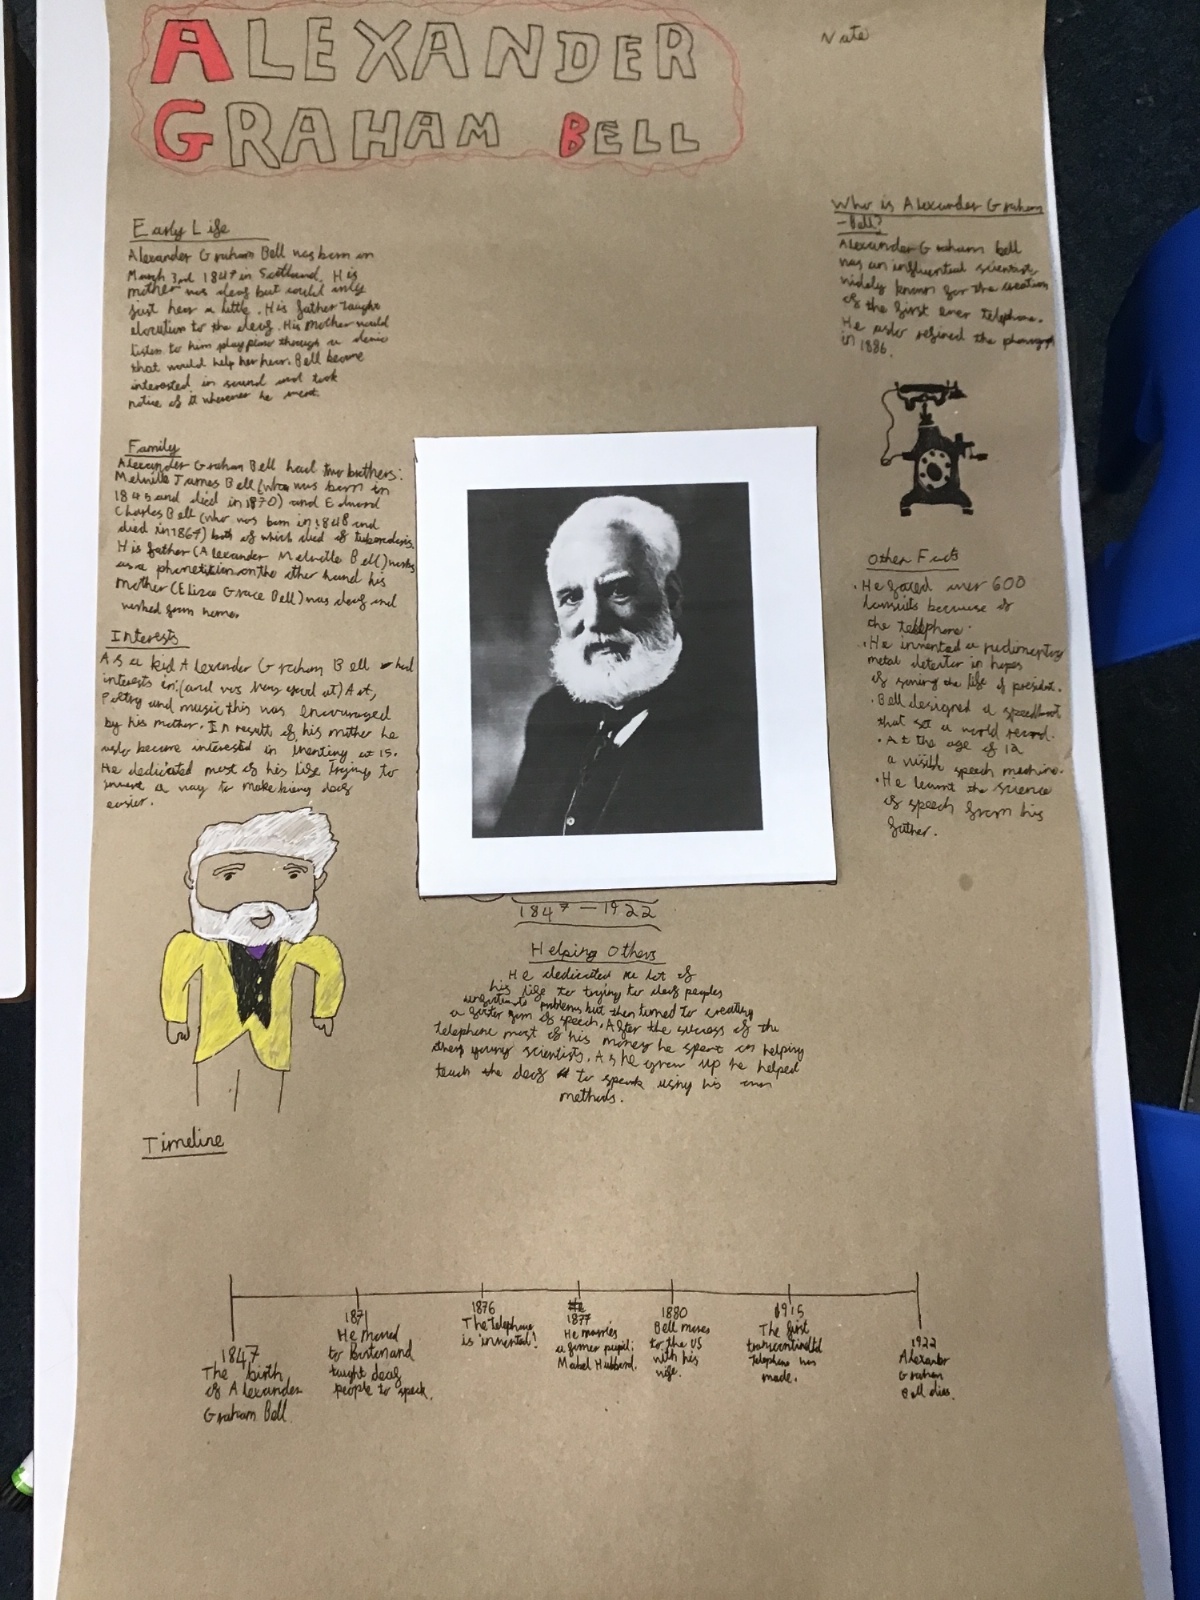 ALEXANDER
GRAHAM BELL
Nate
Early Life
Alexander Graham Bell was born on
March 3rd 1847 in Scotland. His
mother was deaf but could only
just hear a little. His father taught
elocution to the deaf. His mother would
listen to him play piano through a
that would help her hear. Bell became
interested in sound and took
notice of it wherever he went.
Family
Alexander Graham Bell had two brothers:
Melville James Bell (who was born in
1845 and died in 1870) and Edward
Charles Bell (who was born in 1848 and
died in 1867) both of which died of tuberculosis.
His father (Alexander Melville Bell) works
as a phonetition on the other hand his
mother (Eliza Grace Bell) was deaf and
worked from home.
Interests
As a kid Alexander Graham Bell had
interests in: (and was very good at) Art,
Poetry and music this was encouraged
by his mother. In result of his mother he
also became interested in inventing at 15.
He dedicated most of his life trying to
invent a way to make being deaf
easier.
Who is Alexander Graham
-Bell?
Alexander Graham bell
was an influential scientist,
widely known for the creation
of the first ever telephone.
He also refined the
in 1886.
Other Facts
• He faced over 600
lawsuits because of
the telephone.
• He invented a rudimentary
metal detector in hopes
of saving the life of president.
• Bell designed a speedboat
that set a world record.
• At the age of 12
a visible speech machine.
• He learnt the science
of speech from his
father.
1847 - 1922
Helping Others
He dedicated a lot of
his life to trying to deaf peoples
problems but then turned to creating
a form of speech. After the success of the
telephone most of his money he spent on helping
other young scientists. As he grew up he helped
teach the deaf to speak using his own
methods.
Timeline
1847
The birth
of Alexander
Graham Bell.
1871
He moved
to Boston and
taught deaf
people to speak.
1876
The telephone
is invented!
1877
He marries
a former pupil:
Mabel Hubbard.
1880
Bell moves
to the US
with his
wife.
1915
The first
transcontinental
telephone was
made.
1922
Alexander
Graham
Bell dies.